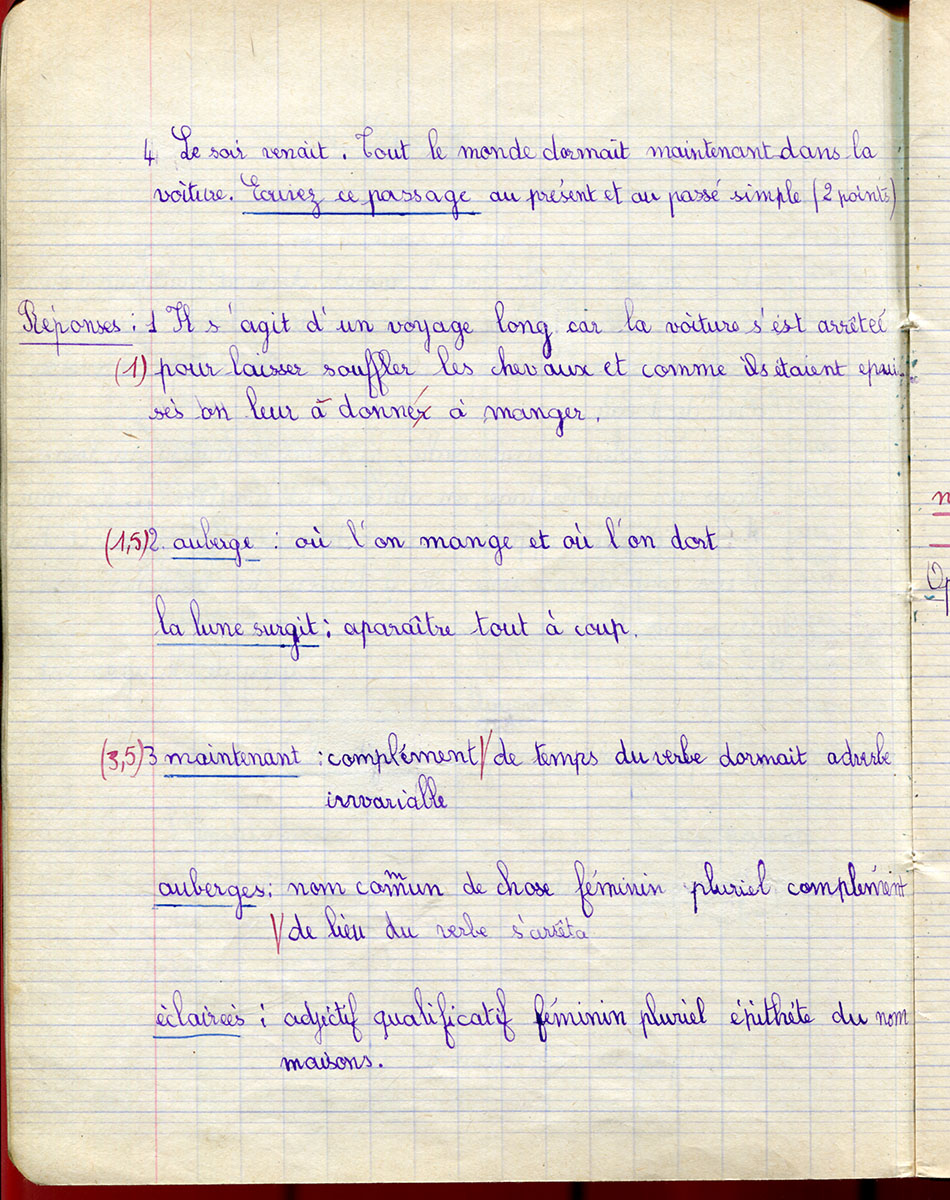 4 Le soir venait. Tout le monde dormait maintenant dans la
voiture. Ecrivez ce passage au présent et au passé simple (2 points)
Réponses : 1 Il s'agit d'un voyage long car la voiture s'est arrêtée
(1) pour laisser souffler les chevaux et comme ils étaient épui-
sés on leur à donner à manger.
(1,5) 2. auberge : où l'on mange et où l'on dort
la lune surgit : aparaître tout à coup.
(3,5) 3 maintenant : complément de temps du verbe dormait adverbe
invariable
auberges : nom commun de chose féminin pluriel complément
de lieu du verbe s'arrêta
éclairées : adjéctif qualificatif féminin pluriel épithéte du nom
maisons.